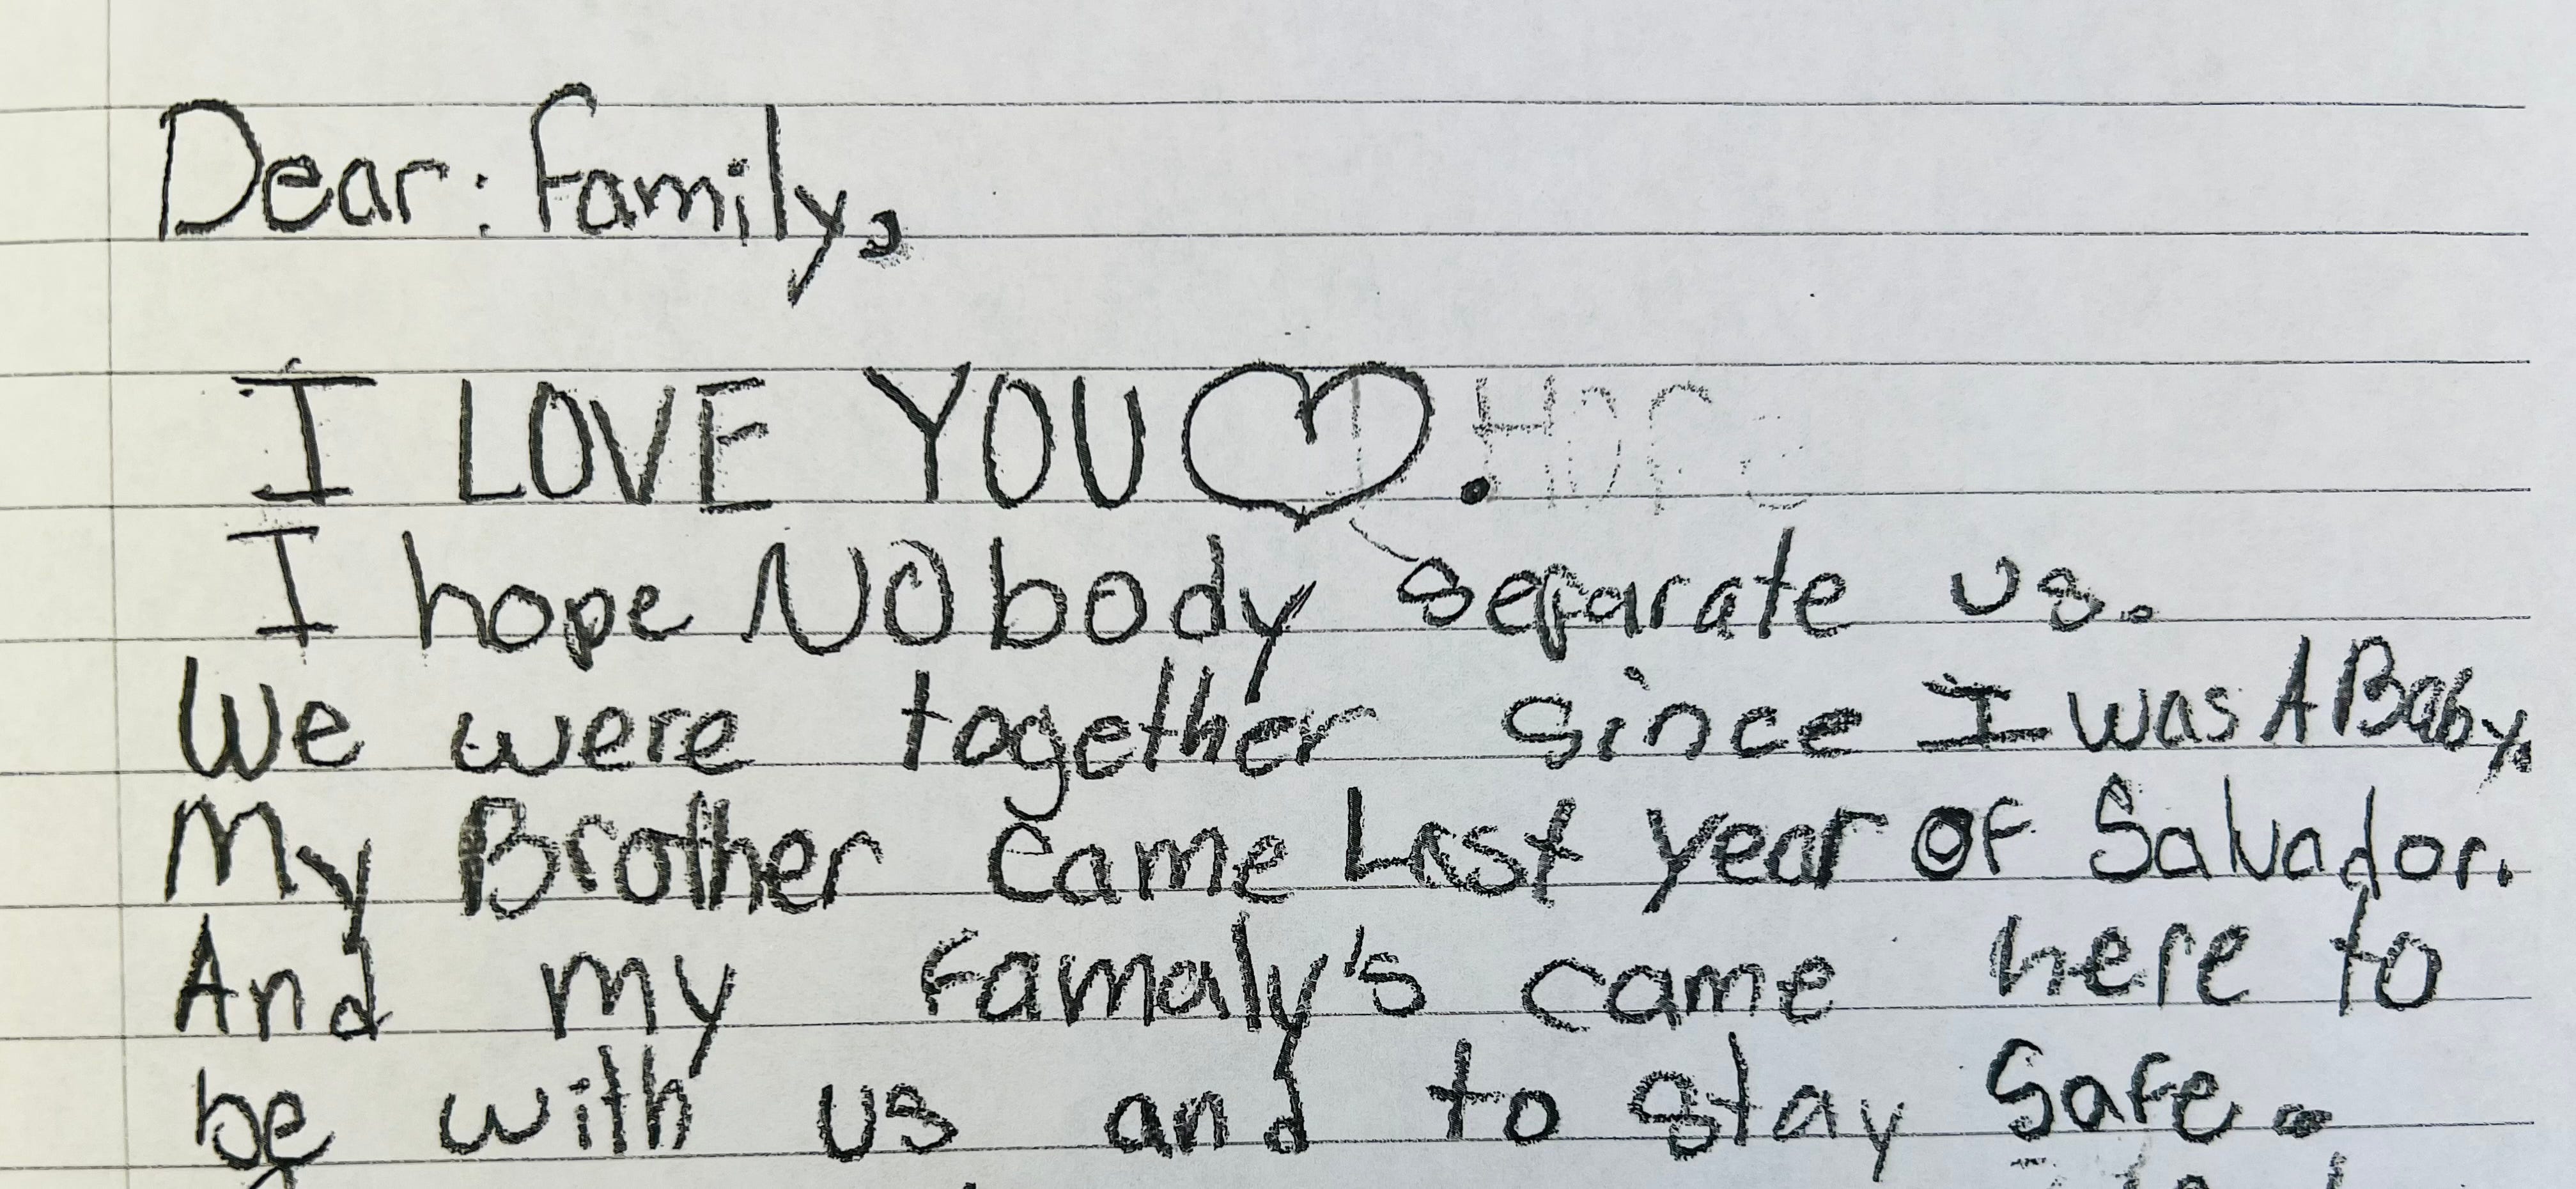 Dear: family,
I LOVE YOU♡. Hope
I hope NObody separate us.
We were together since I was A Baby.
My Brother came Last year OF Salvador.
And my famaly's came here to
be with us and to stay Safe.